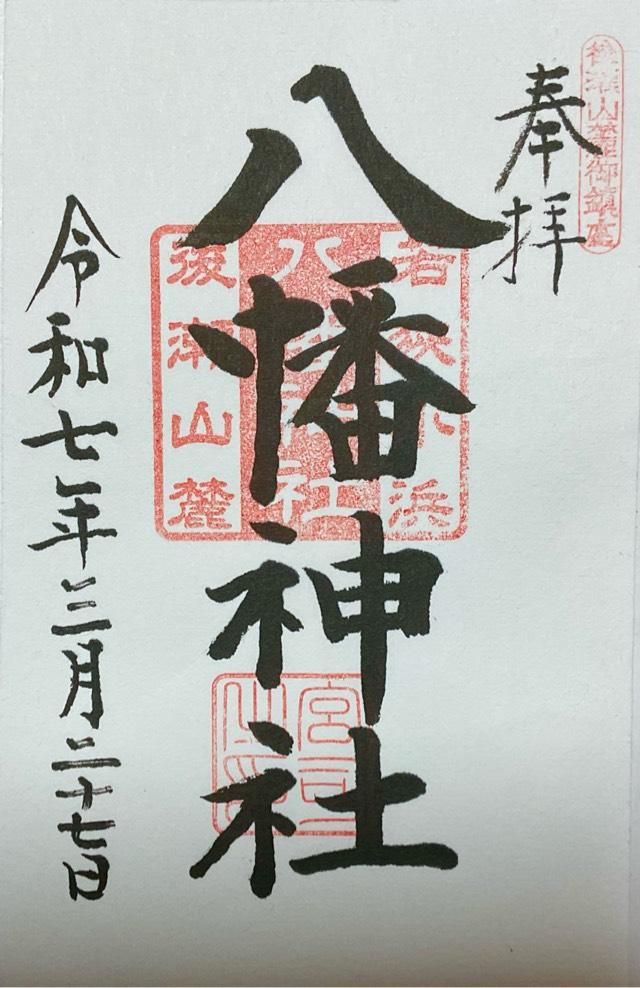 後瀬山麓御鎮座
奉拝
八幡神社
若狭小浜
八幡神社
後瀬山麓
宮司之印
令和七年三月二十七日